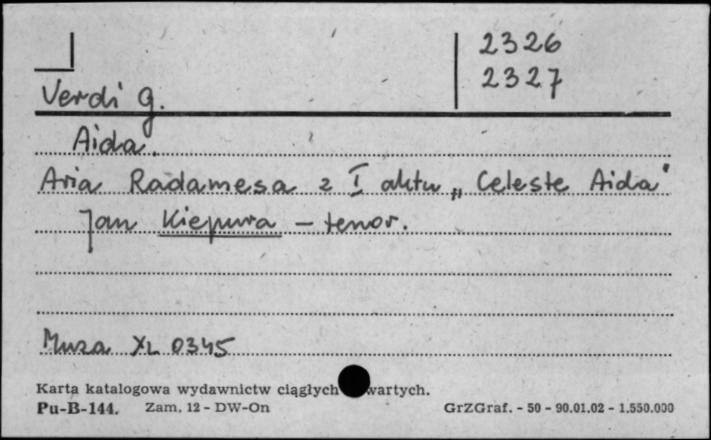 2326
2327
Verdi G.
Aida.
Aria Radamesa z I aktu „Celeste Aida"
Jan Kiepura - tenor.
Muza XL 0345
Karta katalogowa wydawnictw ciągłych wartych.
Pu-B-144. Zam. 12 - DW-On GrZGraf. - 50 - 90.01.02 - 1.550.000